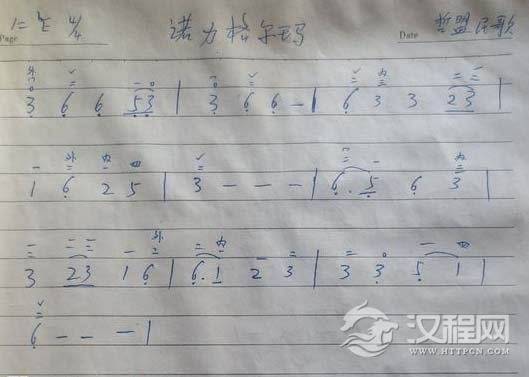 1=C 4/4 诺力格尔玛 哲盟民歌
Page Date
3 6 6 53 | 3 6 6 - | 6 3 3 23 |
1 6 2 5 | 3 - - - | 6. 5 6 3 |
3 23 1 6 | 6. 1 2 3 | 3 3 5 1 |
6 - - - |
汉程网
WWW.HTTPCN.COM